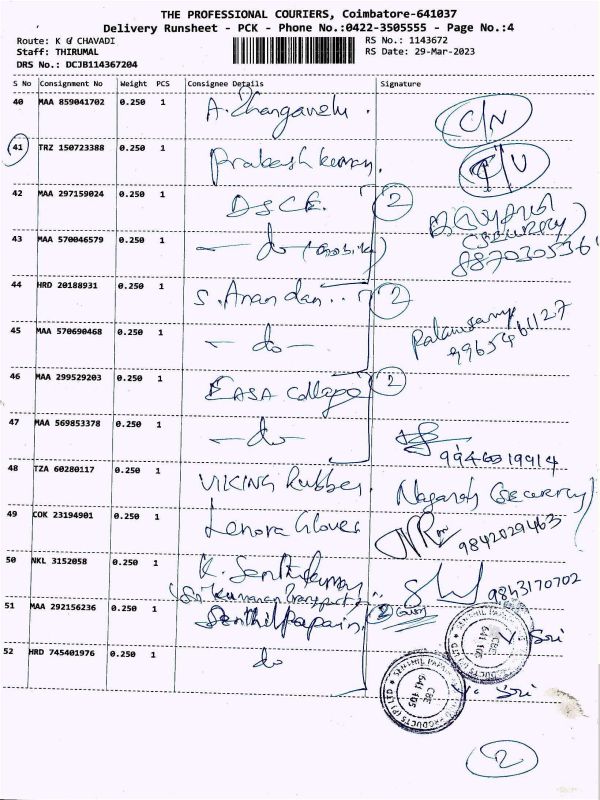 THE PROFESSIONAL COURIERS, Coimbatore-641037
Delivery Runsheet - PCK - Phone No.:0422-3505555 - Page No.:4
Route: K G CHAVADI
RS No.: 1143672
Staff: THIRUMAL
RS Date: 29-Mar-2023
DRS No.: DCJB114367204
S No Consignment No Weight PCS Consignee Details Signature
40 MAA 859041702 0.250 1 A. Thangavelu. C/N
41 TRZ 150723388 0.250 1 Prakash kumar.
42 MAA 297159024 0.250 1 DSCE. 2
43 MAA 570046579 0.250 1 - do -
44 HRD 20188931 0.250 1 S. Anandan.. 2
45 MAA 570690468 0.250 1 - do - Palanisamy
9965461127
46 MAA 299529203 0.250 1 EASA College 2
47 MAA 569853378 0.250 1 - do -
48 TZA 60280117 0.250 1 VIKING Rubber. Nagaraj (Security)
49 COK 23194901 0.250 1 Lenora Glover 9842029463
50 NKL 3152058 0.250 1 K. Senthilkumar 9843170702
(Sri Kumaran Transport)
51 MAA 292156236 0.250 1 Senthil Papain. 2 V. Sri
52 HRD 745401976 0.250 1 do V. Sri
2